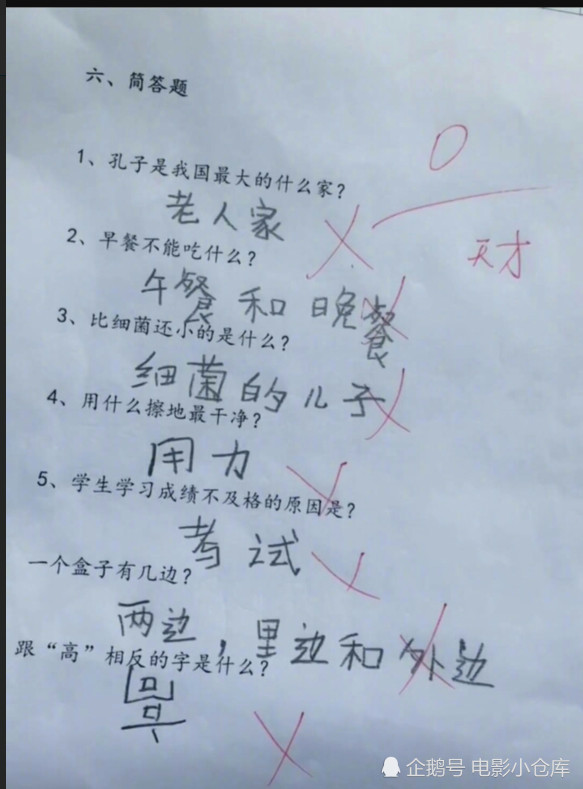 六、简答题
0
1、孔子是我国最大的什么家?
老人家
天才
2、早餐不能吃什么?
午餐和晚餐
3、比细菌还小的是什么?
细菌的儿子
4、用什么擦地最干净?
用力
5、学生学习成绩不及格的原因是?
考试
一个盒子有几边?
两边，里边和外边
跟“高”相反的字是什么?
企鹅号 电影小仓库